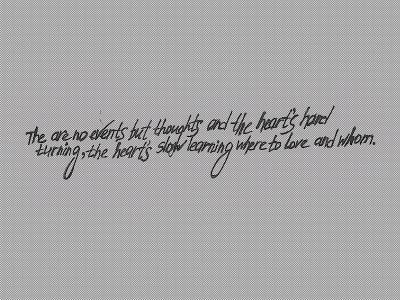 The are no events but thoughts and the heart's hard
turning, the heart's slow learning where to love and whom.